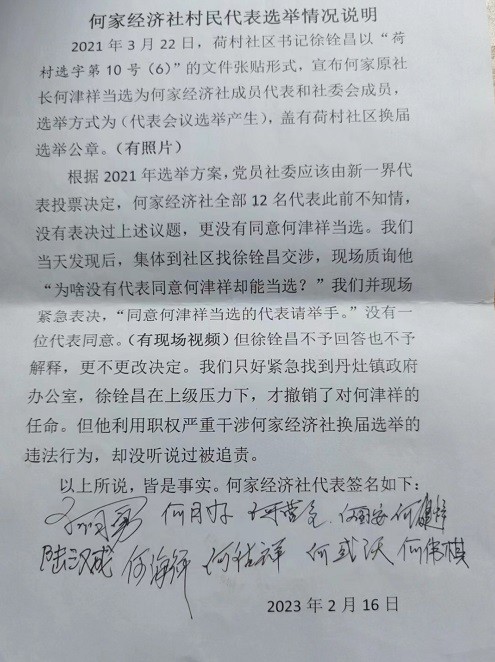 何家经济社村民代表选举情况说明
2021年3月22日，荷村社区书记徐铨昌以“荷
村选字第10号（6）”的文件张贴形式，宣布何家原社
长何津祥当选为何家经济社成员代表和社委会成员，
选举方式为（代表会议选举产生），盖有荷村社区换届
选举公章。（有照片）
根据2021年选举方案，党员社委应该由新一界代
表投票决定，何家经济社全部12名代表此前不知情，
没有表决过上述议题，更没有同意何津祥当选。我们
当天发现后，集体到社区找徐铨昌交涉，现场质询他
“为啥没有代表同意何津祥却能当选？”我们并现场
紧急表决，“同意何津祥当选的代表请举手。”没有一
位代表同意。（有现场视频）但徐铨昌不予回答也不予
解释，更不更改决定。我们只好紧急找到丹灶镇政府
办公室，徐铨昌在上级压力下，才撤销了对何津祥的
任命。但他利用职权严重干涉何家经济社换届选举的
违法行为，却没听说过被追责。
以上所说，皆是事实。何家经济社代表签名如下：
何月好
陆汉成 何海祥 何祐祥 何或沃 何伟棋
2023年2月16日